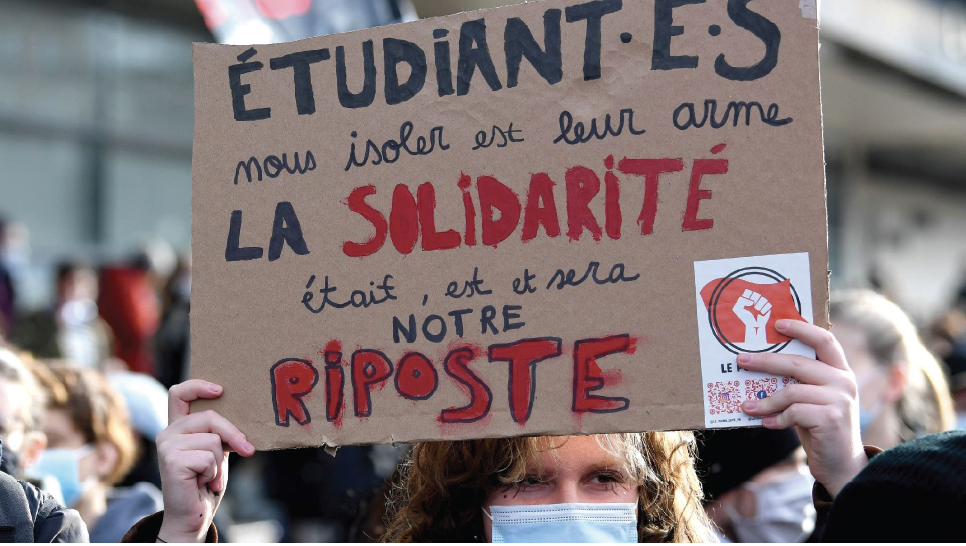 ÉTUDIANT·E·S
nous isoler est leur arme
LA SOLIDARITÉ
était, est et sera
NOTRE
RIPOSTE
LE